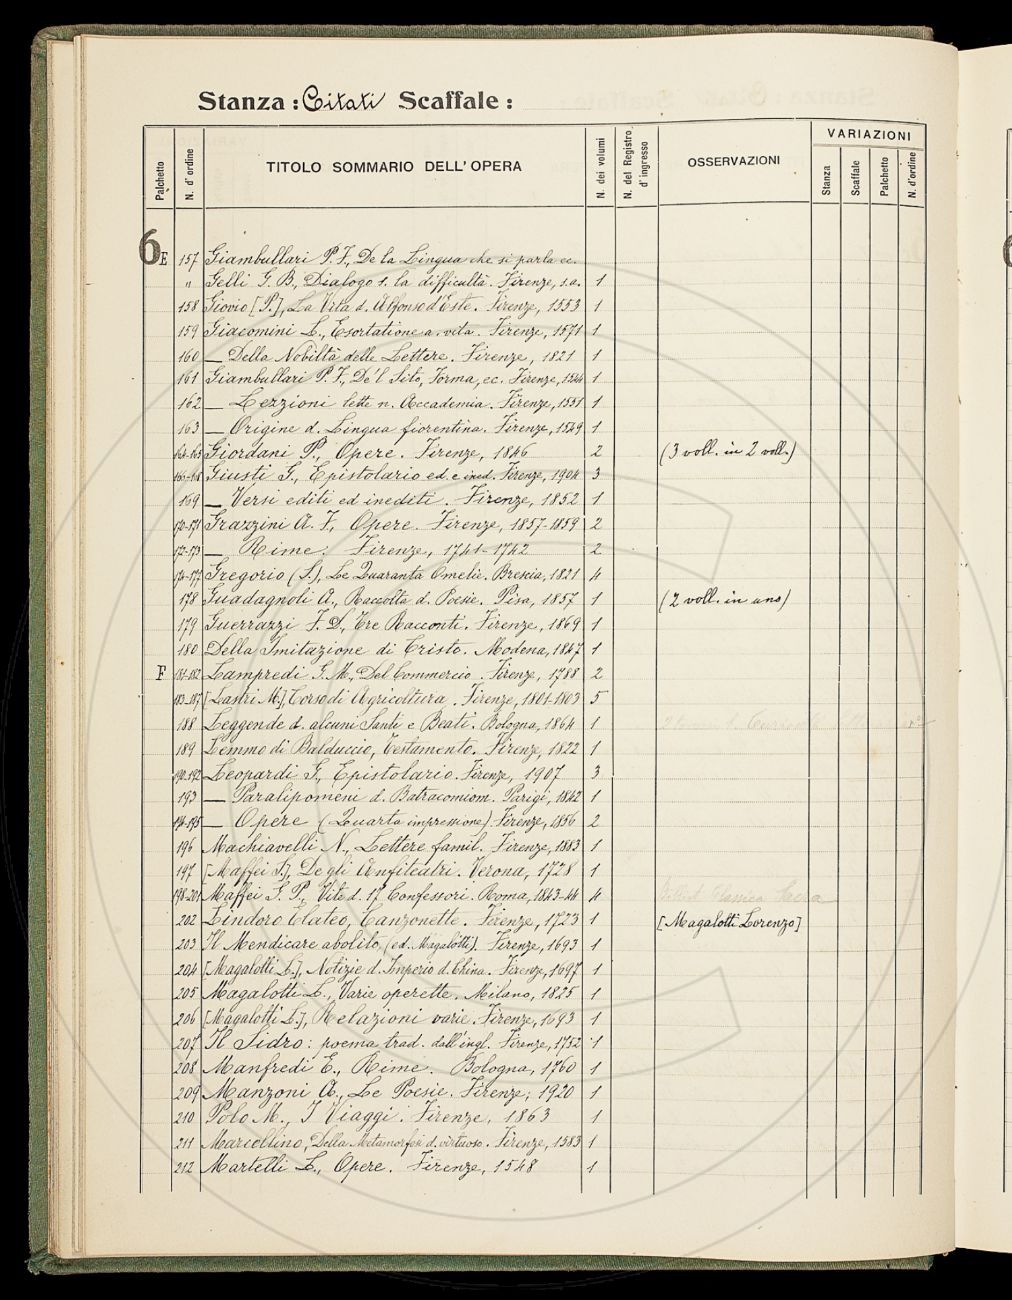 Stanza: Citati Scaffale:
Palchetto N. d'ordine TITOLO SOMMARIO DELL'OPERA N. dei volumi N. del Registro d'ingresso OSSERVAZIONI VARIAZIONI
Stanza Scaffale Palchetto N. d'ordine
6 E 157 Giambullari P. F., De la Lingua che si parla ec.
" Gelli G. B., Dialogo s. la difficultà. Firenze, s.a. 1
158 Giovio [P.], La Vita d. Alfonso d'Este. Firenze, 1553 1
159 Giacomini L., Esortatione a. vita. Firenze, 1571 1
160 — Della Nobiltà delle Lettere. Firenze, 1821 1
161 Giambullari P. F., De'l Sito, Forma, ec. Firenze, 1544 1
162 — Lezzioni lette n. Accademia. Firenze, 1551 1
163 — Origine d. Lingua fiorentina. Firenze, 1549 1
164-165 Giordani P., Opere. Firenze, 1846 2 (3 voll. in 2 voll.)
166-168 Giusti G., Epistolario ed. e ined. Firenze, 1904 3
169 — Versi editi ed inediti. Firenze, 1852 1
170-171 Grazzini A. F., Opere. Firenze, 1857-1859 2
172-173 — Rime. Firenze, 1741-1742 2
174-177 Gregorio (S.), Le Quaranta Omelie. Brescia, 1821 4
178 Guadagnoli A., Raccolta d. Poesie. Pisa, 1857 1 (2 voll. in uno)
179 Guerrazzi F. D., Tre Racconti. Firenze, 1869 1
180 Della Imitazione di Cristo. Modena, 1847 1
F 181-182 Lampredi G. M., Del Commercio. Firenze, 1788 2
183-187 [Lastri M.], Corso di Agricoltura. Firenze, 1801-1803 5
188 Leggende d. alcuni Santi e Beati. Bologna, 1864 1
189 Lemmo di Balduccio, Testamento. Firenze, 1822 1
190-192 Leopardi G., Epistolario. Firenze, 1907 3
193 — Paralipomeni d. Batracomiom. Parigi, 1842 1
194-195 — Opere (Quarta impressione). Firenze, 1856 2
196 Machiavelli N., Lettere famil. Firenze, 1883 1
197 [Maffei S.], De gli Anfiteatri. Verona, 1728 1
198-201 Maffei G. P., Vite d. 17 Confessori. Roma, 1843-44 4
202 Lindoro Elateo, Canzonette. Firenze, 1723 1 [Magalotti Lorenzo]
203 Il Mendicare abolito (ed. Magalotti). Firenze, 1693 1
204 [Magalotti L.], Notizie d. Imperio d. China. Firenze, 1697 1
205 Magalotti L., Varie operette. Milano, 1825 1
206 [Magalotti L.], Relazioni varie. Firenze, 1693 1
207 Il Sidro: poema trad. dall'ingl. Firenze, 1752 1
208 Manfredi E., Rime. Bologna, 1760 1
209 Manzoni A., Le Poesie. Firenze, 1920 1
210 Polo M., I Viaggi. Firenze, 1863 1
211 Marcellino, Della Metamorfosi d. virtuoso. Firenze, 1583 1
212 Martelli L., Opere. Firenze, 1548 1